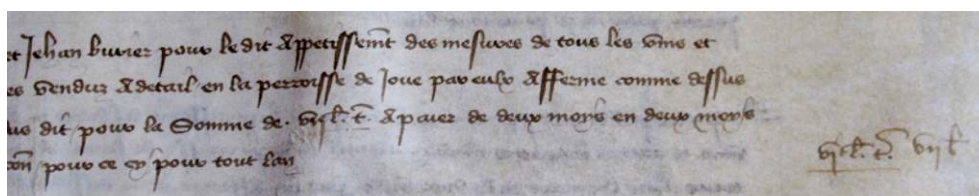 et Jehan Burier pour ledit Appetissemt des mesures de tous les vins et
es venduz A detail en la perroisse de Joue par eulx Afferme comme dessus
us dit pour la Somme de . vi cl. t. A paier de deux moys en deux moys
con pour ce cy pour tout lan
vi cl. t.